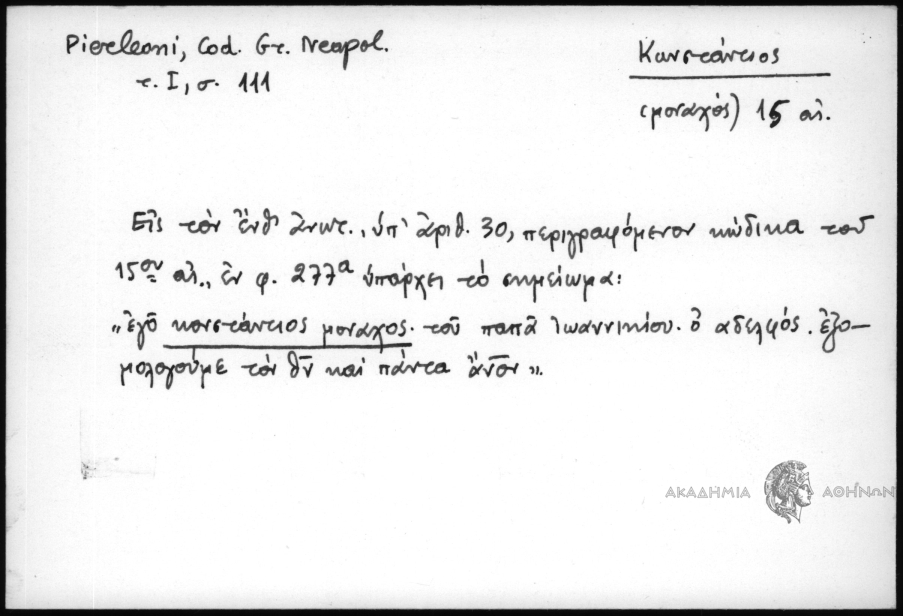 Pierleoni, Cod. Gr. Neapol.
τ. I, σ. 111
Κωνστάντιος
(μοναχός) 15 αἰ.
Εἰς τὸν ἔνθ' ἀνωτ., ὑπ' ἀριθ. 30, περιγραφόμενον κώδικα τοῦ
15ου αἰ., ἐν φ. 277α ὑπάρχει τὸ σημείωμα:
„ἐγὸ κονστάντιος μοναχος. τοῦ παπᾶ ἰωαννικίου. ὁ αδελφός. ἐξο-
μολογούμε τὸν θν καὶ πάντα ἄνον".
ΑΚΑΔΗΜΙΑ ΑΘΗΝΩΝ